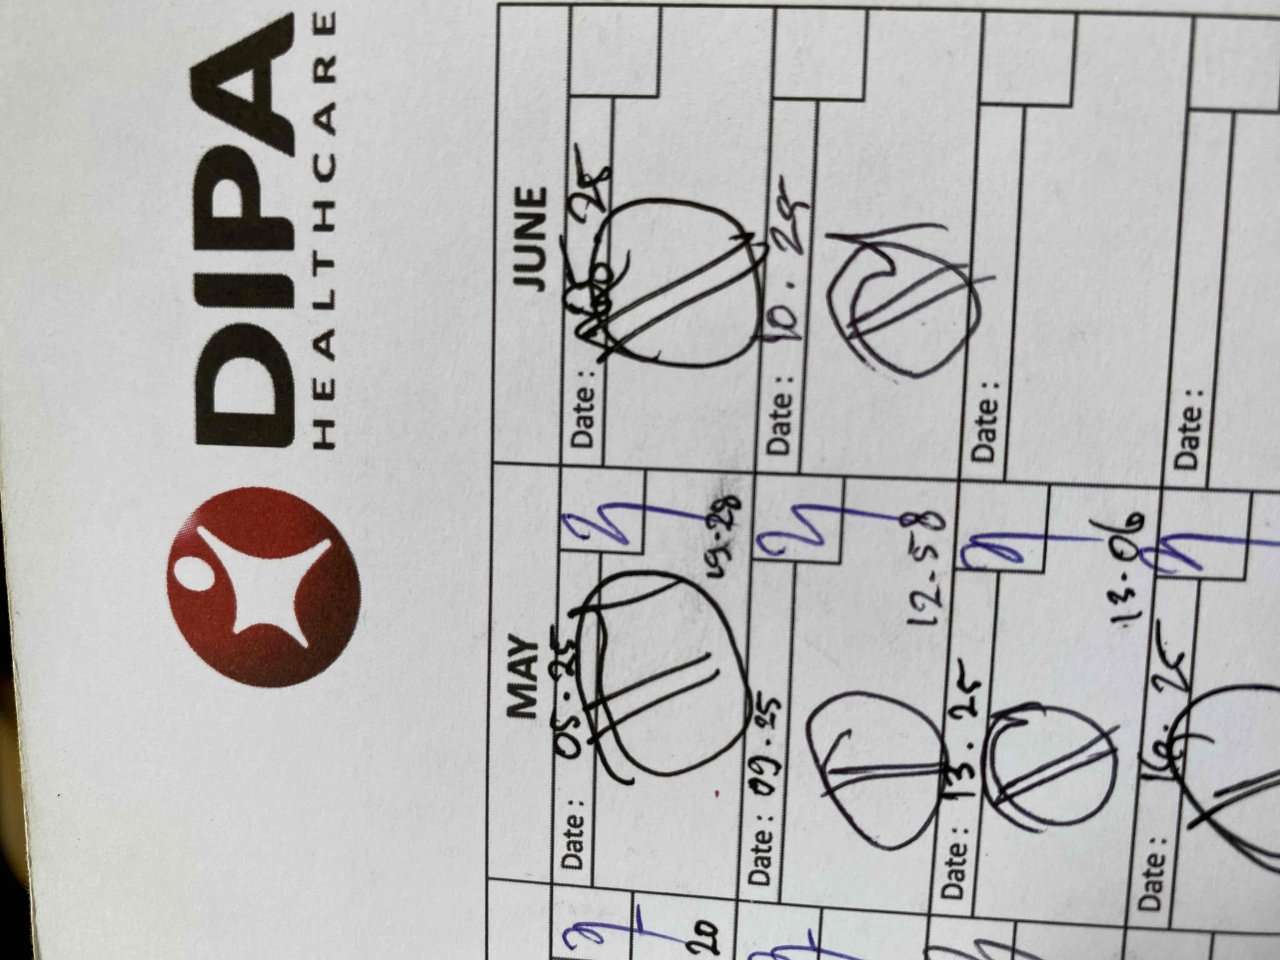 DIPA
HEALTHCARE
MAY
JUNE
Date : 05.25
Date : 25
19-28
Date : 09.25
Date : 10.25
12-58
Date : 13.25
Date :
13.06
Date : 25
Date :
20